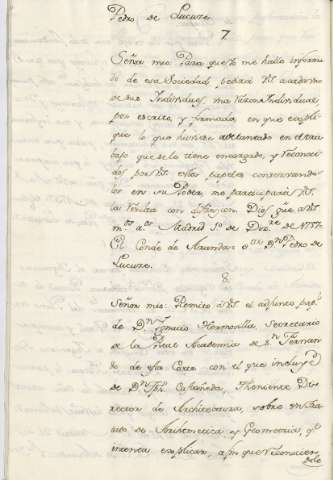 Pedro de Lucuze.
7
Señor mio Para que Yo me halle informa
do de esa Sociedad, pedirá Vs. a cada uno
de sus Individuos, una Razon Individual
por escrito, y firmada, en que expli
que lo que huviere adelantado en el tra
bajo que se le tiene encargado, y reconoci
dos por Vs. estos papeles conservando
los en su Poder, me participará Vs.
las resultas con distincion. Dios gue. a Vs.
ms. as. Madrid 1o. de Dre. de 1757.
El Conde de Aranda: Sor. Dn. Pedro de
Lucuze.
8
Señor mio: Remito a Vs. el adjunto papl.
de Dn. Ignacio Hermosilla, Secretario
de la Real Academia de Sn. Fernan
do de esta Corte con el que incluye el
de Dn. Jph. Castañeda, Theniente Di
rector de Architectura, sobre un Tra
tado de Arithmetica y Geometria, qe.
intenta explicar, a fin que reconocien
dole